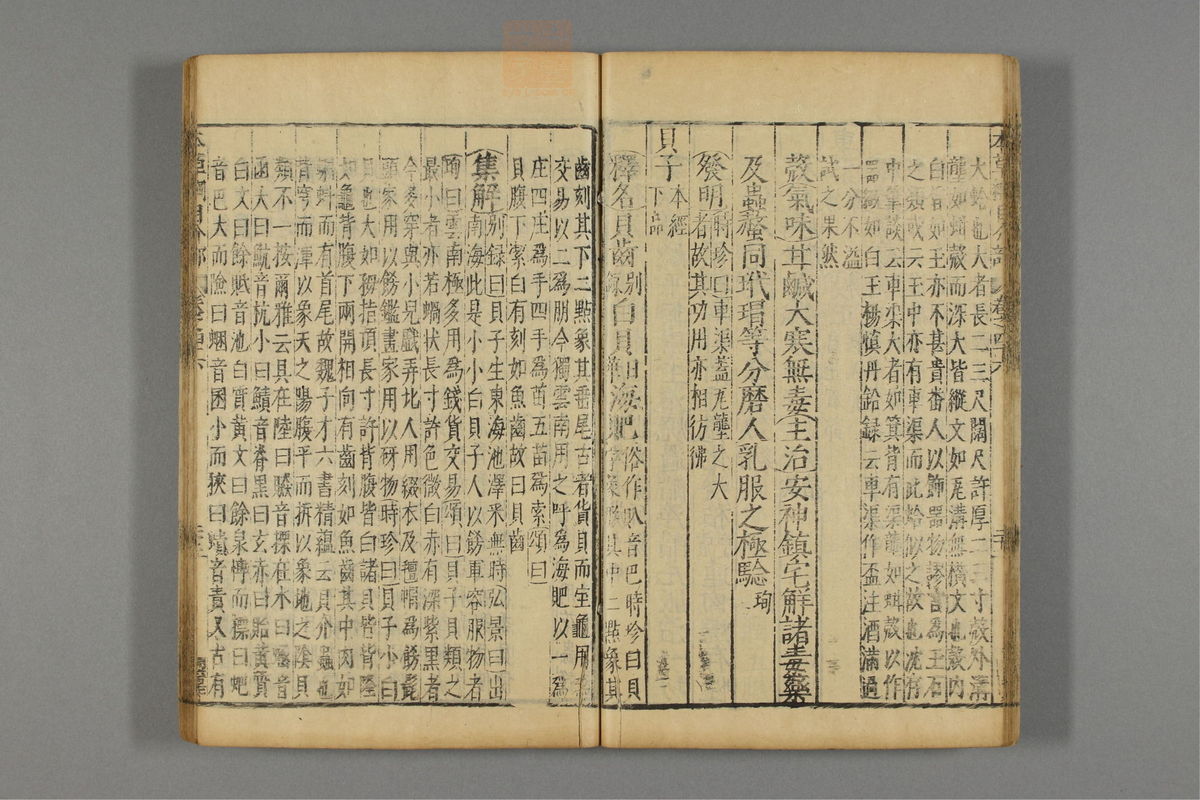 大蛤也大者長二三尺闊尺許厚二三寸殼外溝
壟如蚶殼而深大皆縱文如瓦溝無橫文也殼内
白皙如玉亦不甚貴番人以飾器物謬言為玉石
之類或云玉中亦有車渠而此蛤似之故也沈存
中筆談云車渠大者如箕背有渠壟如蚶殼以作
器緻如白玉楊慎丹鉛録云車渠作盃注酒滿過
一分不溢
試之果然
殼氣味甘鹹大寒無毒主治安神鎮宅解諸毒藥
及蟲螫同玳瑁等分磨人乳服之極驗珣
發明時珍曰車渠蓋瓦壟之大
者故其功用亦相彷彿
貝子本經
下品
釋名貝齒别録白貝日華海𧵅俗作𧵅音巴時珍曰貝
字象形其中二點象其
齒刻其下二點象其垂尾古者貨貝而宝龜用為
交易以二為朋今獨雲南用之呼為海𧵅以一為
庄四庄為手四手為苗五苗為索頌曰
貝腹下潔白有刻如魚齒故曰貝齒
集解别録曰貝子生東海池澤采無時弘景曰出
南海此是小小白貝子人以餙軍容服物者
珣曰雲南極多用為錢貨交易頌曰貝子貝類之
最小者亦若蝸狀長寸許色微白赤有深紫黑者
今多穿與小兒戲弄北人用綴衣及氊帽為餙髡
頭家用以餙鑑畫家用以砑物時珍曰貝子小白
貝也大如拇指頂長寸許背腹皆白諸貝皆背隆
如龜背腹下兩開相向有齒刻如魚齒其中肉如
蝌蚪而有首尾故魏子才六書精蘊云貝介蟲也
背穹而渾以象天之陽腹平而拆以象地之隂貝
類不一按爾雅云貝在陸曰贆音摽在水曰蜬音
函大曰魧音杭小曰鰿音脊黑曰玄赤曰貽黄質
白文曰餘貾音池白質黄文曰餘泉博而摽曰蚆
音巴大而險曰蜠音囷小而狹曰蟦音責又古有